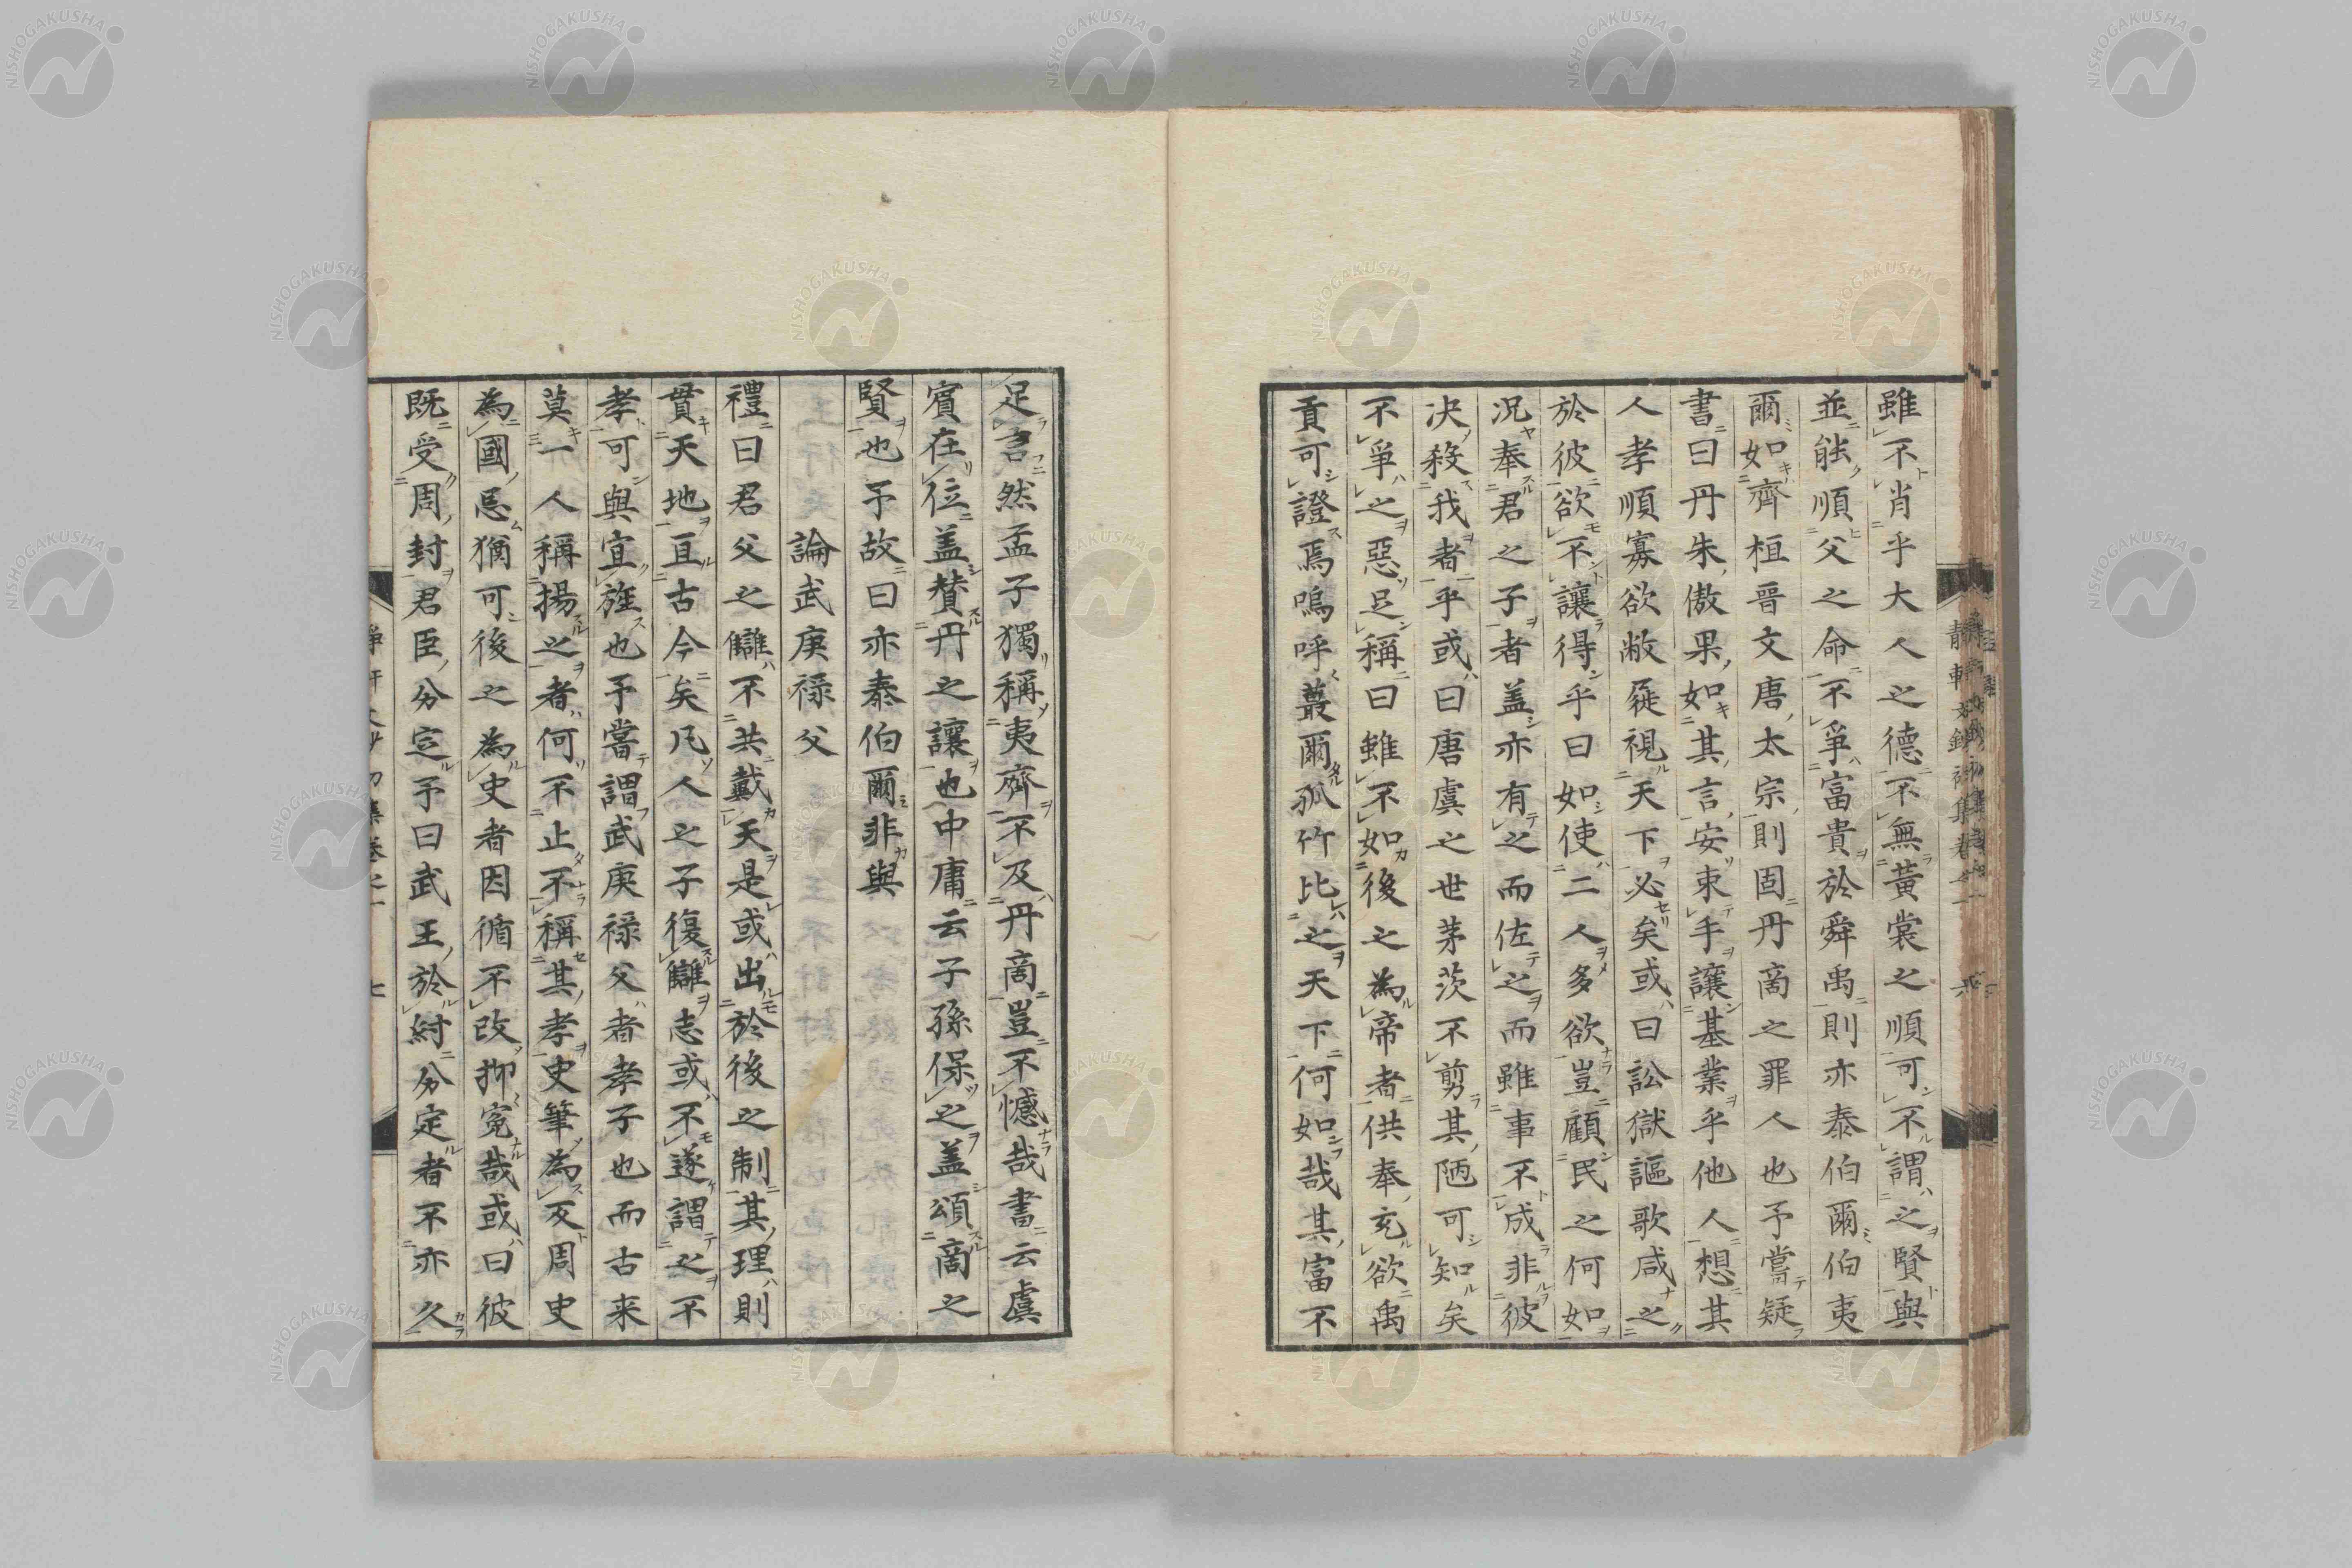 雖不肖乎大人之德不無黃裳之順可不謂之賢與
並能順父之命不爭富貴於舜禹則亦泰伯爾伯夷
爾如齊桓晉文唐太宗則固丹商之罪人也予嘗疑
書曰丹朱傲果如其言安束手讓基業乎他人想其
人孝順寡欲敝屣視天下必矣或曰訟獄謳歌咸之
於彼欲不讓得乎曰如使二人多欲豈顧民之何如
況奉君之子者盖亦有之而佐之而雖事不成非彼
决殺我者乎或曰唐虞之世茅茨不剪其陋可知矣
不爭之惡足稱曰雖不如後之為帝者供奉充欲禹
貢可證焉嗚呼蕞爾孤竹比之天下何如哉其富不
足言然孟子獨稱夷齊不及丹商豈不憾哉書云虞
賓在位盖賛丹之讓也中庸云子孫保之盖頌商之
賢也予故曰亦泰伯爾非與
論武庚祿父
禮曰君父之讎不共戴天是或出於後之制其理則
貫天地亘古今矣凡人之子復讎志或不遂謂之不
孝可與宜旌也予嘗謂武庚祿父者孝子也而古来
莫一人稱揚之者何不止不稱其孝史筆為反周史
為國忌猶可後之為史者因循不改抑冤哉或曰彼
既受周封君臣分定予曰武王於紂分定者不亦久
七
NISHOGAKUSHA